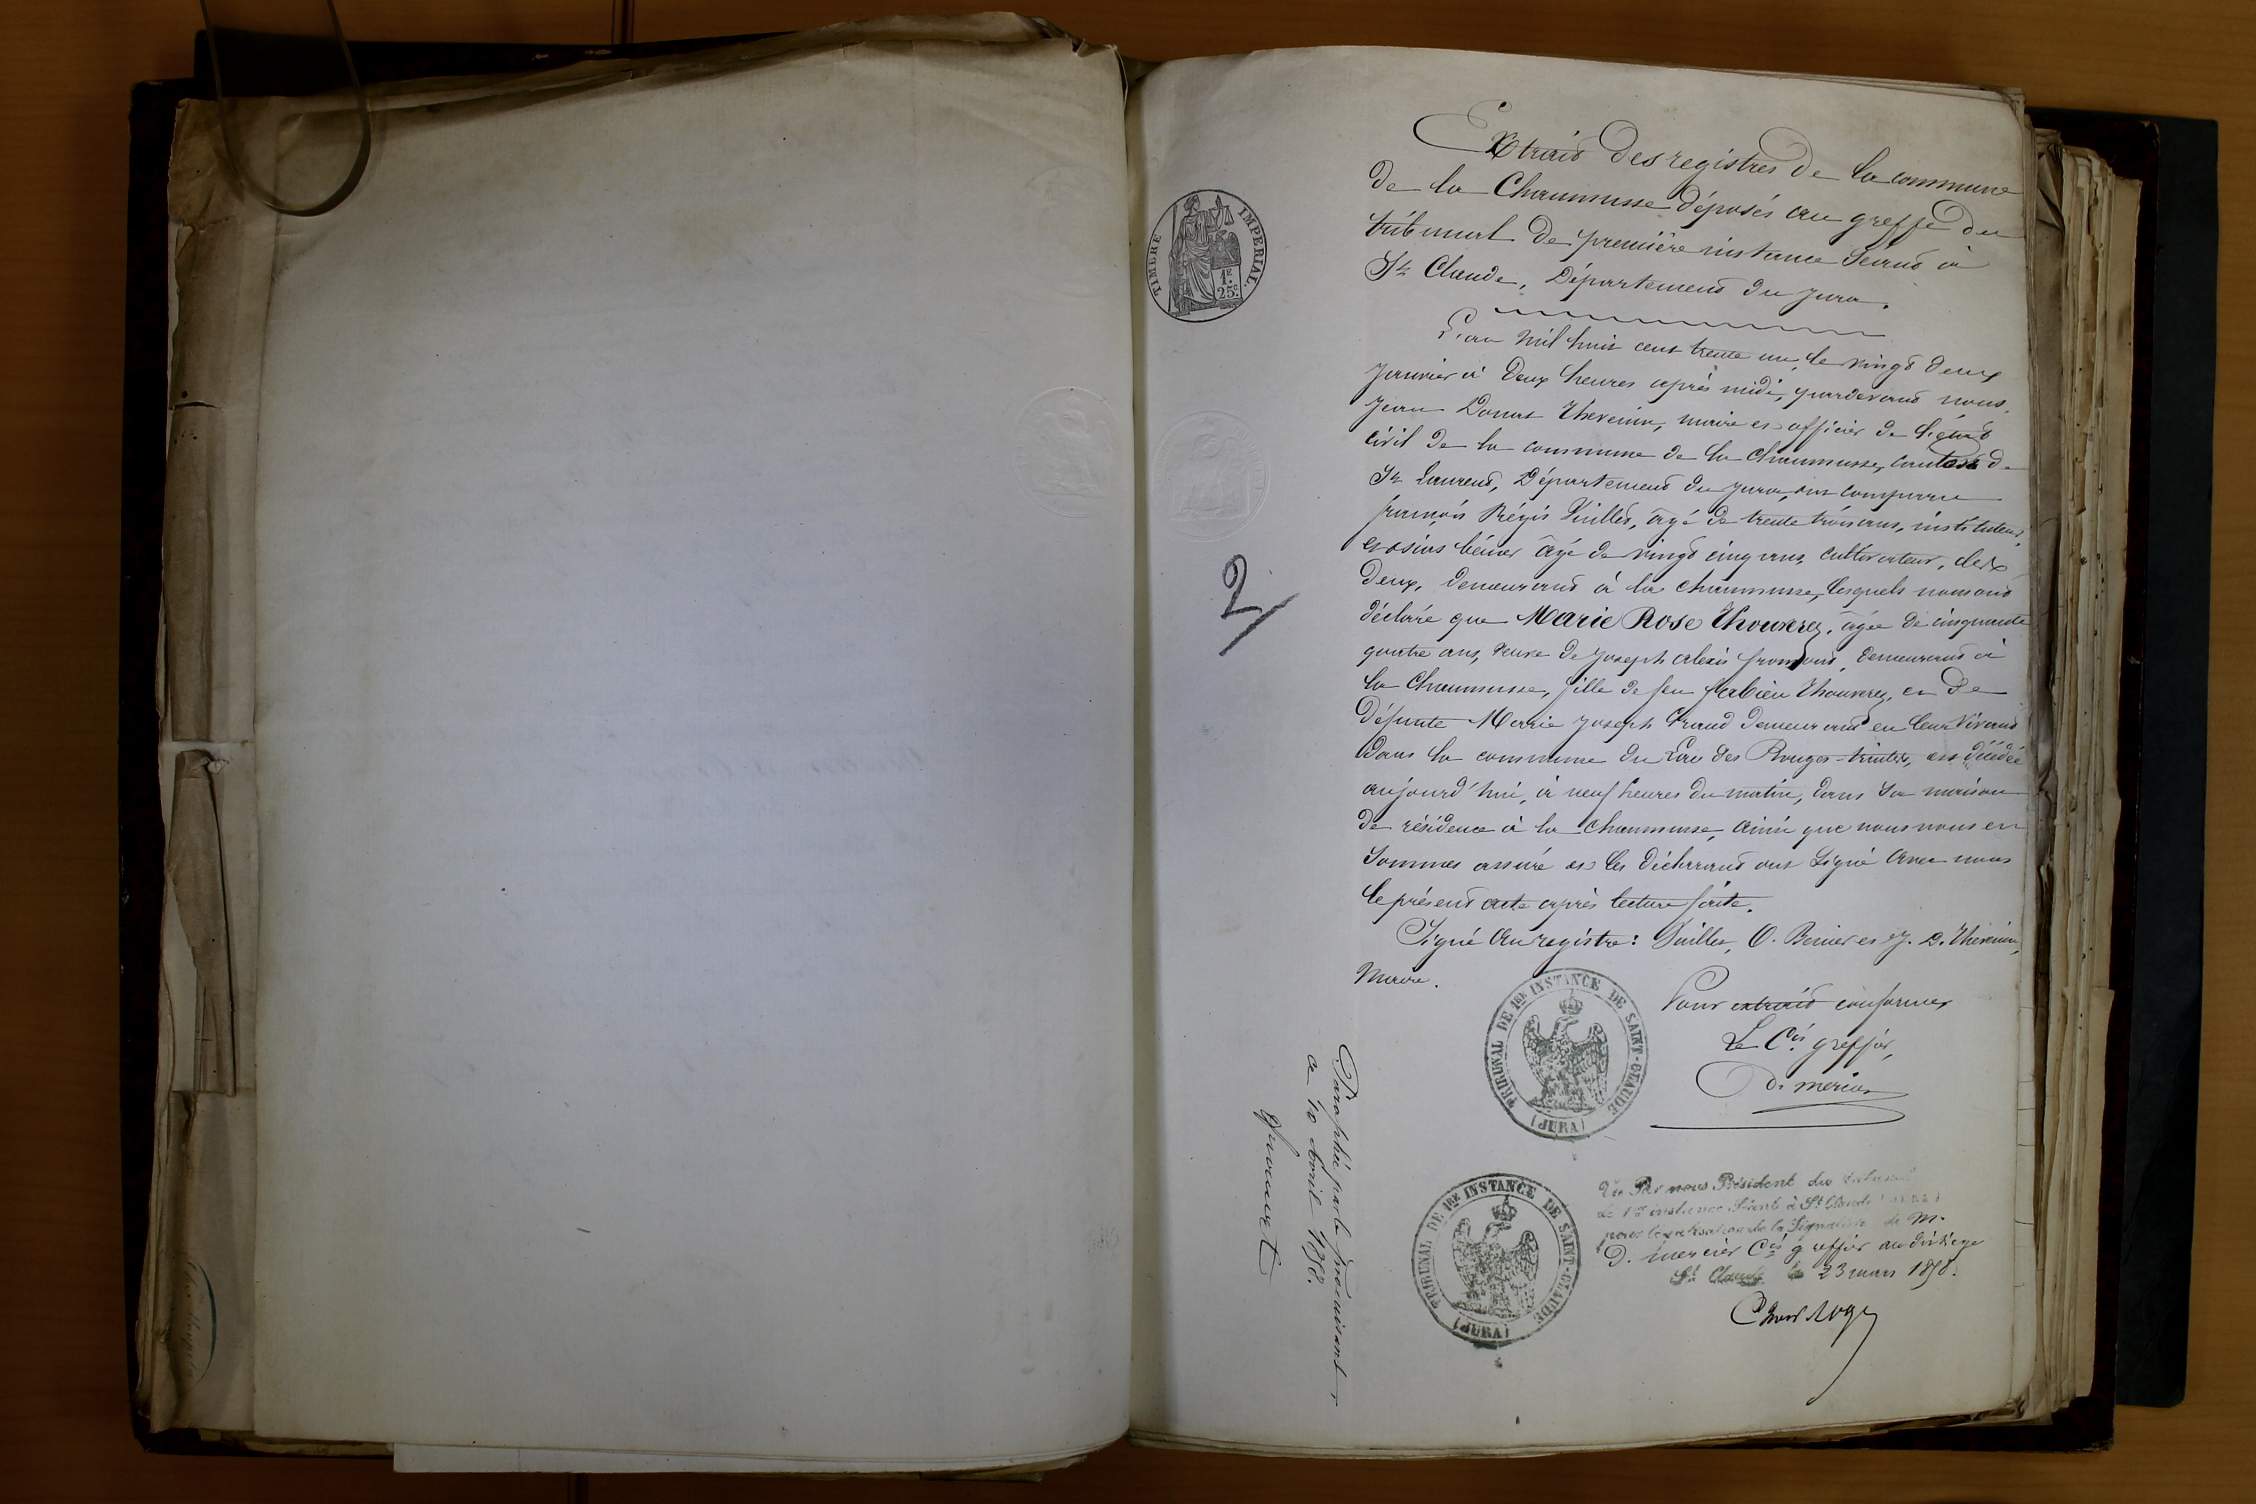 Extrait des registres de la commune
de la Chaumusse déposés au greffe du
tribunal de première instance séant à
St Claude, Département du Jura.
TIMBRE IMPERIAL
1F 25c
L'an mil huit cent trente un, le vingt deux
janvier à deux heures après midi, pardevant nous,
Jean Donat Thevenin, maire et officier de l'état
civil de la commune de la Chaumusse, canton de
St Laurent, Département du Jura, ont comparu
françois Régis Vuillet, âgé de trente trois ans, instituteur,
âgé de vingt cinq ans, cultivateur, les
deux, demeurant à la chaumusse, lesquels nous ont
déclaré que Marie Rose Thouverez, âgée de cinquante
quatre ans, veuve de Joseph alexis fromont, demeurant à
la Chaumusse, fille de feu fabien Thouverez, et de
défunte Marie Joseph Grand demeurant en leur vivant
dans la commune du Lac des Rouges-truites, est décédée
aujourd'hui, à neuf heures du matin, dans sa maison
de résidence à la chaumusse, ainsi que nous nous en
sommes assuré et les déclarant ont signé avec nous
le présent acte après lecture faite.
Signé au registre: Vuillet, O. Benier et J. D. Thevenin,
Maire.
2/
Pour extrait conforme
Le Cis greffier,
D. mercier
TRIBUNAL DE 1RE INSTANCE DE SAINT-CLAUDE (JURA)
Paraphée par le produisant
ce 10 Avril 1858.
Vu Par nous Président du tribunal
de 1re instance Séante à St Claude
pour légalisation de la Signature de M.
D. mercier Cis greffier
St Claude le 23 mars 1858.
TRIBUNAL DE 1RE INSTANCE DE SAINT-CLAUDE (JURA)